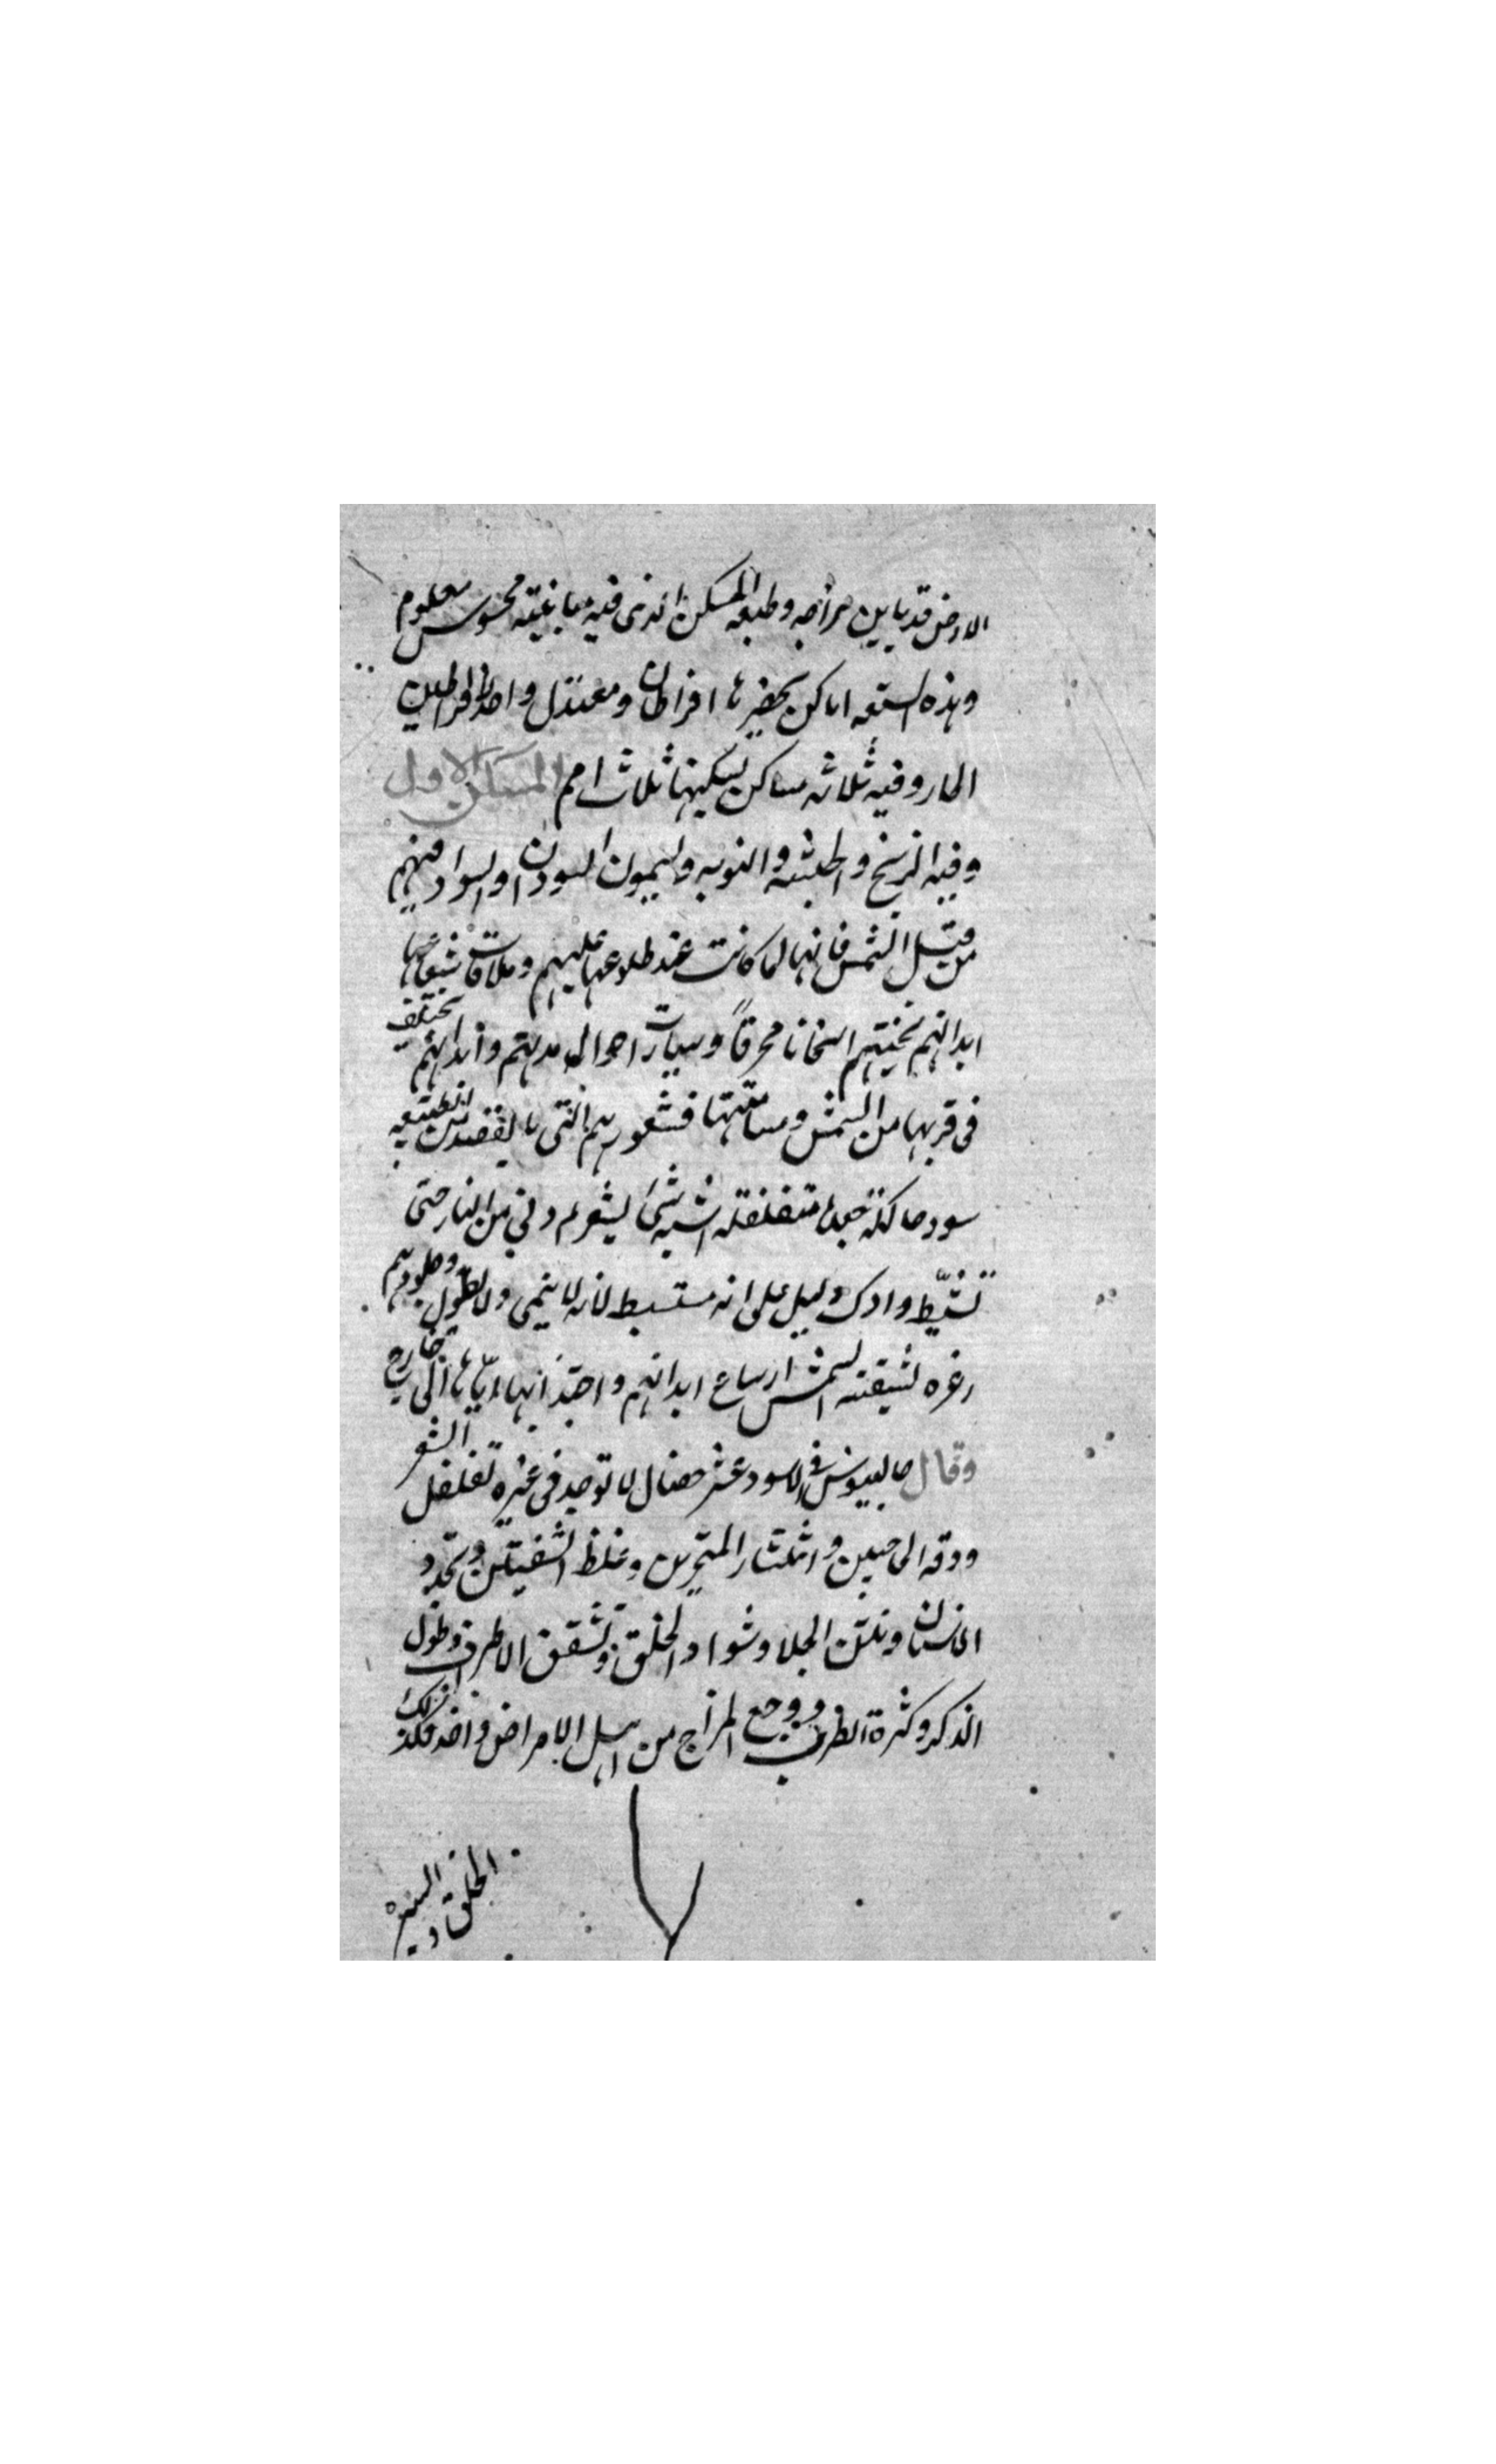 الارض قد باين مزاجه وطبعه المسكن الذى فيه مباينيته محسوس معلوم
وهذه السبعه اماكن يحضرها افراطان ومعتدل واحد الافراطين
الحار وفيه ثلاثه مساكن يسكنها ثلاث امم المسكن الاول
وفيه الزنج والحبشه والنوبه وليمون السودان والسواد فيهم
من قبل الشمس فانها لما كانت عند طلوعها عليهم وملاقات شعاعها
ابدانهم يسخنهم اسخانا محرقاً وسيارت احوال مدنهم وابدانهم تختلف
فى قربها من الشمس ومسامتتها فشعورهم التى يقصد من الطبيعه
سود حالكة جعدة متفلفله اشبه شئ بشعر دنى من النار حتى
تشيّط وادل دليل على انه متشيط لانه لا ينمى ولا يطول وجلودهم
زعره لتنقيته الشمس اوساع ابدانهم واجتذابها اياها الى خارج
وقال جالينوس فى الاسود عشر خصال لا توجد فى غيره تفلفل الشعر
ودقه الحاجبين وانتشار المنخرين وغلظ الشفيتين وتحدد
الاسنان ونتن الجلد وسواد الخلق وتشقق الاطراف وطول
الذكر وكثرة الطرب ووجع المزاج من اهل الامراض واخذ فكذلك